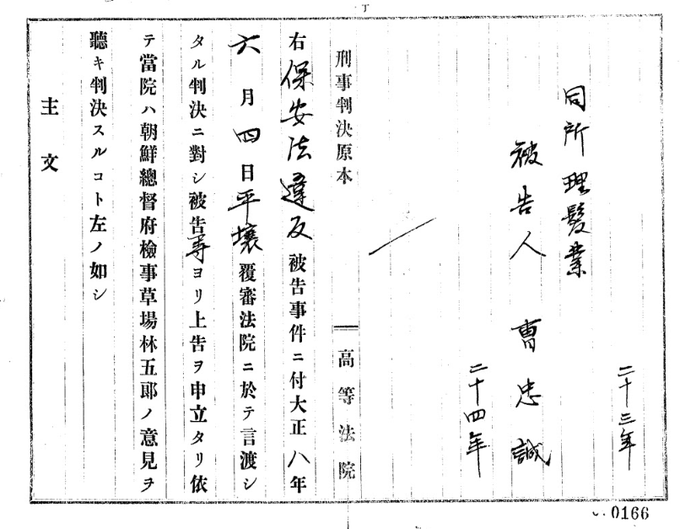 二十三年
同所 理髮業
被告人 曹忠誠
二十四年
刑事判決原本
高等法院
右保安法違反被告事件ニ付大正八年
六月四日平壤覆審法院ニ於テ言渡シ
タル判決ニ對シ被告等ヨリ上告ヲ申立タリ依
テ當院ハ朝鮮總督府檢事草場林五郞ノ意見ヲ
聽キ判決スルコト左ノ如シ
主文
0166